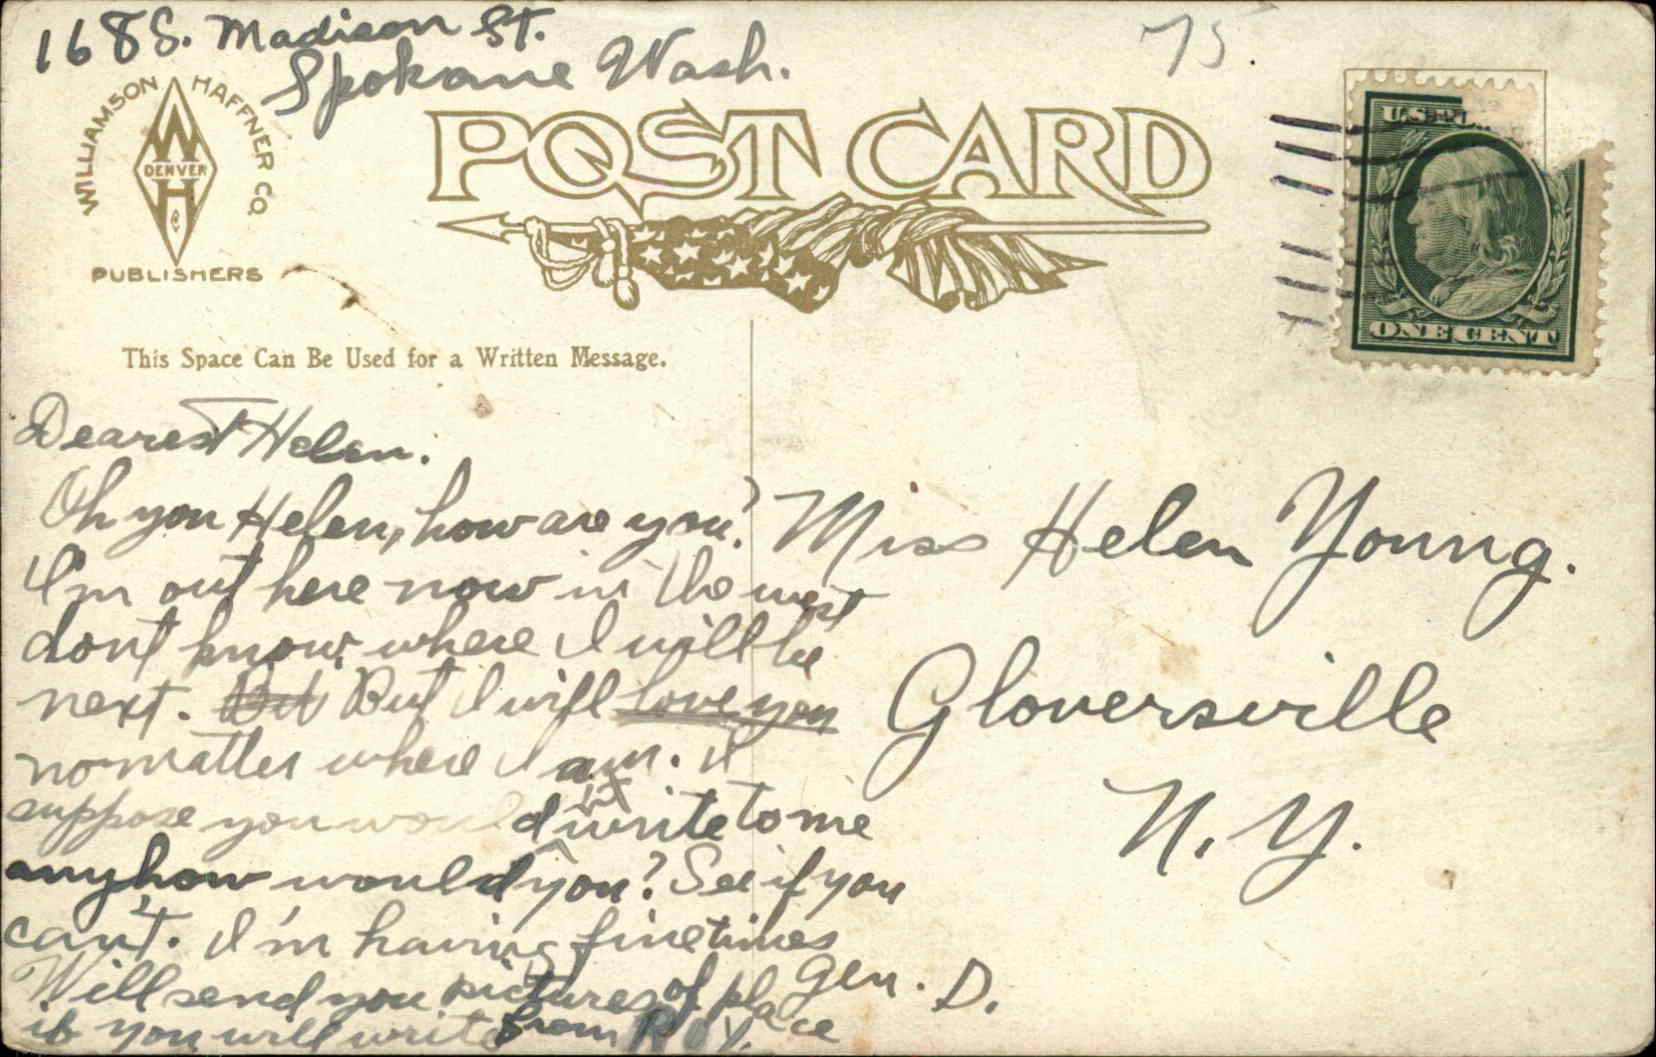 168 S. Madison St.
Spokane Wash.
75.
WILLIAMSON HAFFNER CO
W
DENVER
H
PUBLISHERS
POST CARD
ONE CENT
This Space Can Be Used for a Written Message.
Dearest Helen.
Oh you Helen, how are you?
I'm out here now in the west
dont know where I will be
next. But But I will love you
no matter where I am. I
suppose you would nt write to me
anyhow would you? See if you
can't. I'm having fine times
Will send you pictures of place
if you will write from ROY.
Miss Helen Young.
Gloversville
N. Y.
Gen. D.